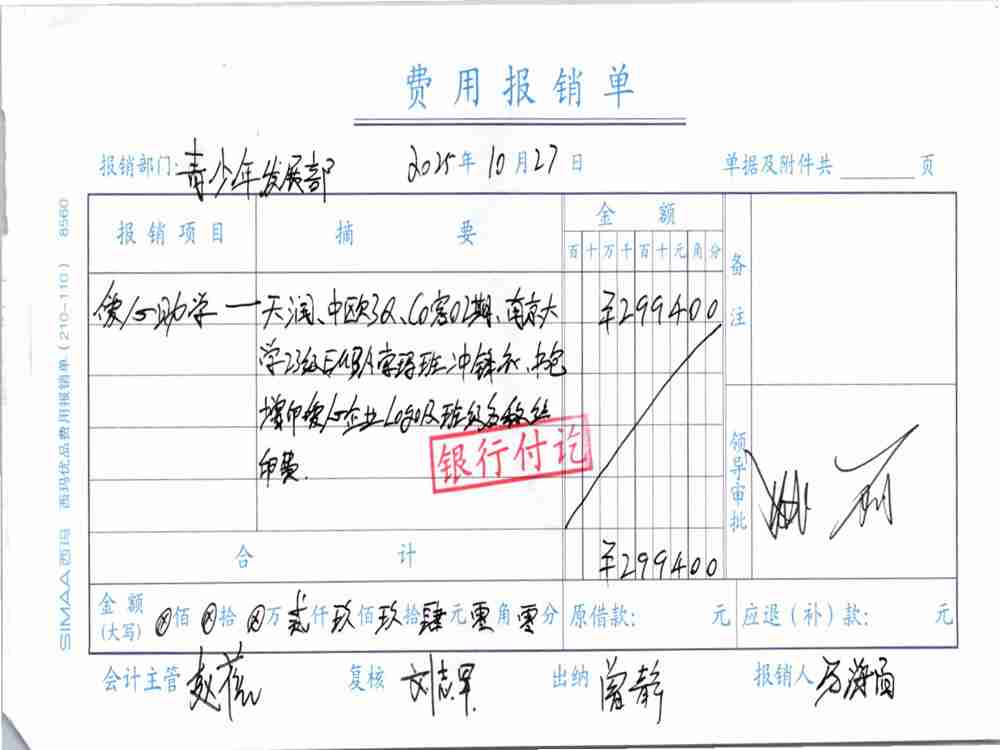 费用报销单
报销部门: 青少年发展部 2025年10月27日 单据及附件共 页
报销项目 摘要 金额 备注
百十万千百十元角分
爱心助学 一天润、中欧3队、CO窖02期、南京大 ¥299400
学23级EMBA索玛班冲锋衣、书包
增印爱心企业logo及班级名称丝
印费.
银行付讫
领导审批
合计 ¥299400
金额(大写) ⊗佰⊗拾⊗万贰仟玖佰玖拾肆元零角零分 原借款: 元 应退(补)款: 元
会计主管 赵 复核 刘志军 出纳 曾静 报销人 马海
SIMAA西玛 西玛优品费用报销单(210-110) 8560